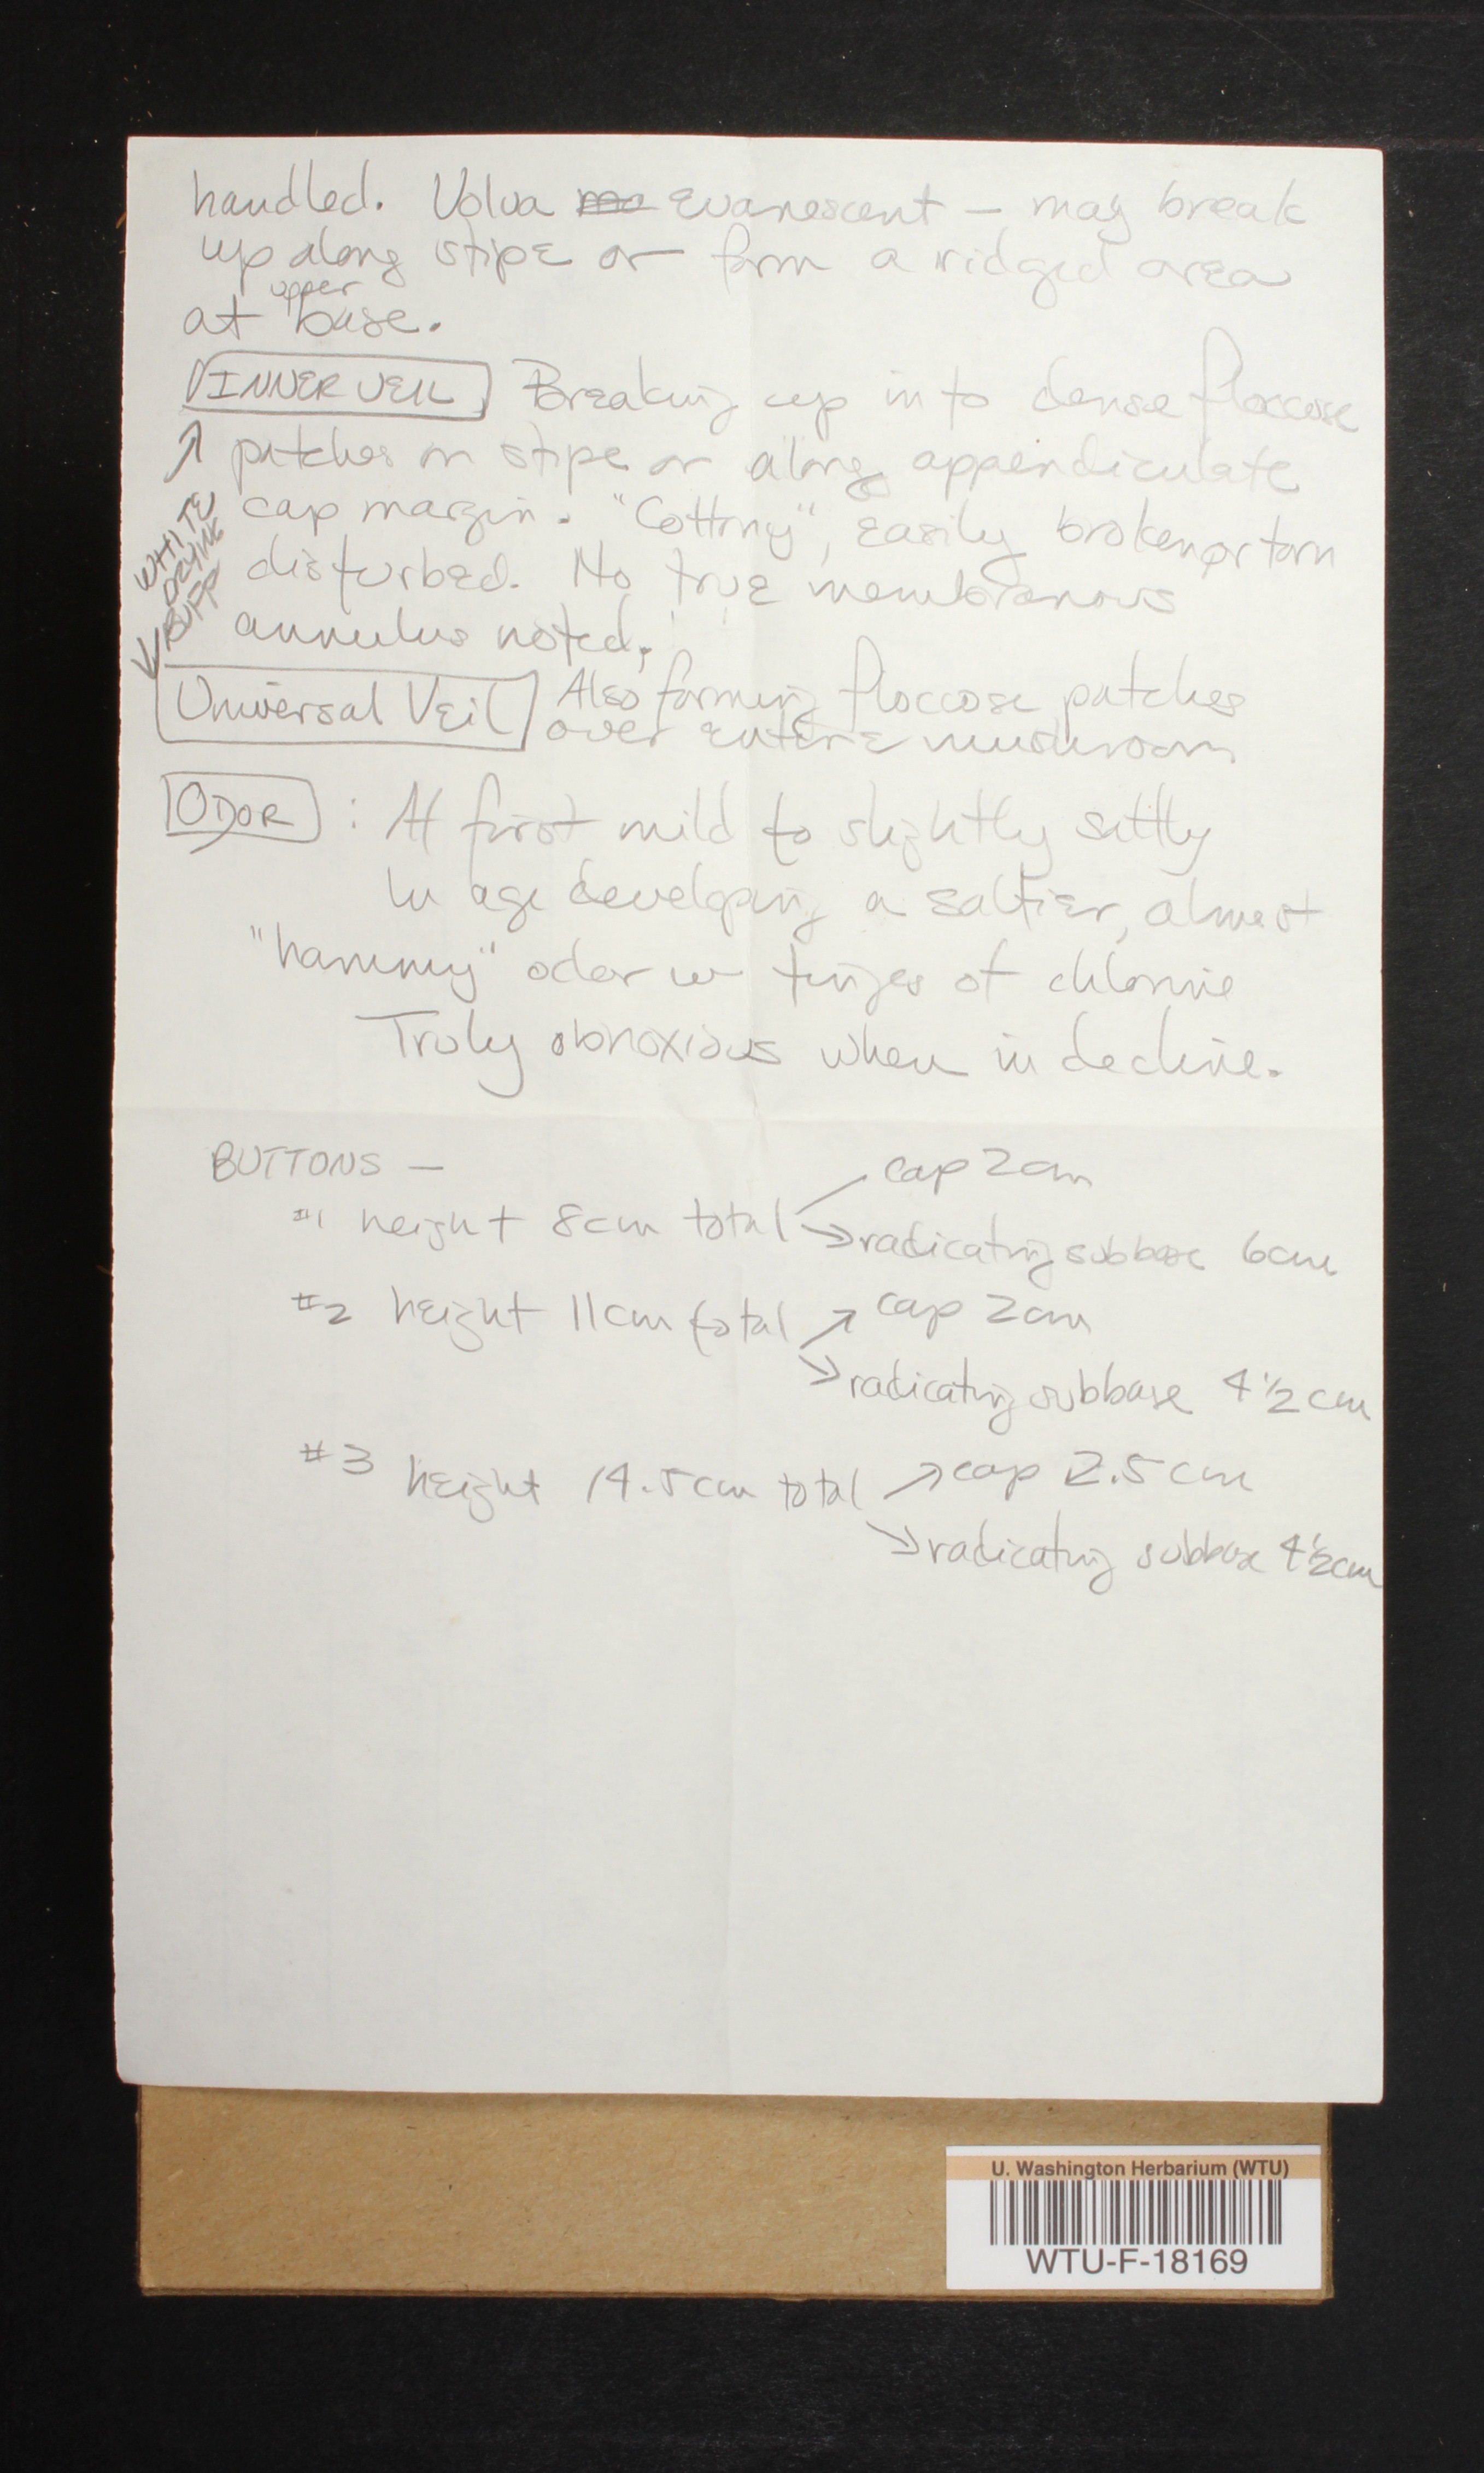 handled. Volva evanescent – may break
up along stipe or form a ridged area
at upper base.
INNER VEIL Breaking up into dense floccose
patches on stipe or along appendiculate
cap margin. "Cottony", easily broken or torn
disturbed. No true membranous
annulus noted.
WHITE
DRYING
BUFF
Universal Veil Also forming floccose patches
over entire mushroom
ODOR : At first mild to slightly saltly
In age developing a saltier, almost
"hammy" odor w tinges of chlorine
Truly obnoxious when in decline.
BUTTONS —
#1 height 8cm total cap 2cm
radicating subbase 6cm
#2 height 11cm total cap 2cm
radicating subbase 4½cm
#3 height 14.5cm total cap 2.5cm
radicating subbase 4½cm
U. Washington Herbarium (WTU)
WTU-F-18169